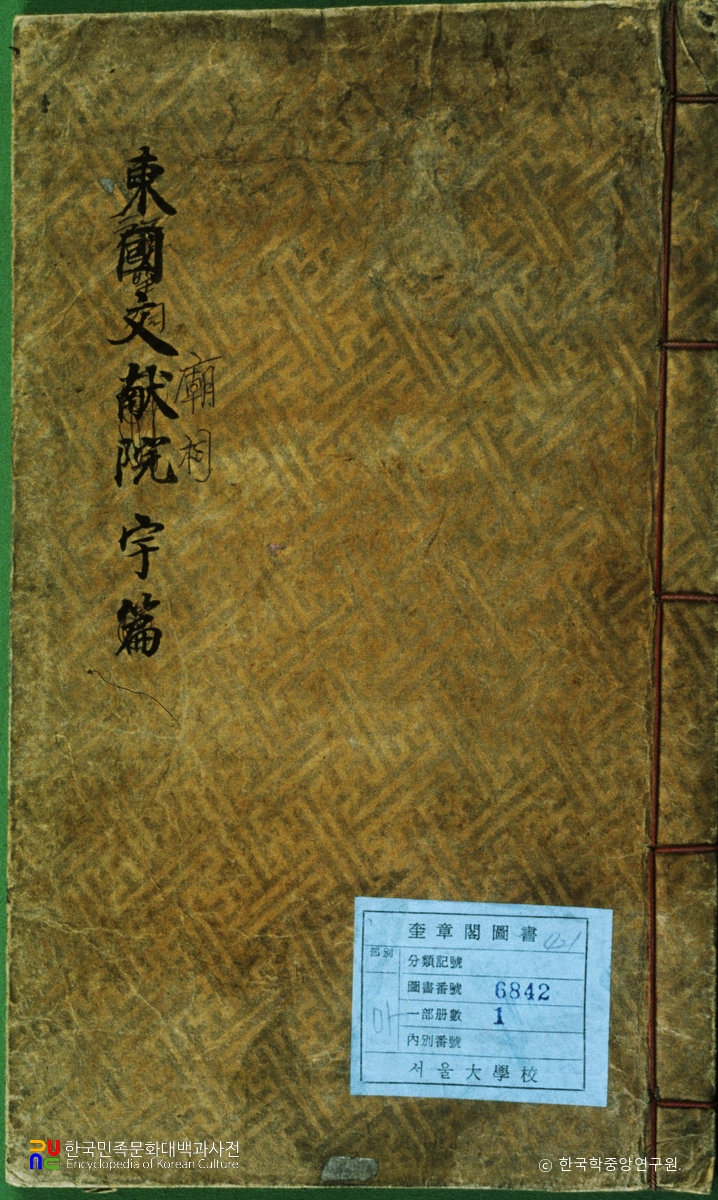 東國文献院宇篇
廟祠
奎章閣圖書
部別
分類記號
圖書番號 6842
一部册數 1
內別番號
마
서울大學校
한국민족문화대백과사전
Encyclopedia of Korean Culture
© 한국학중앙연구원